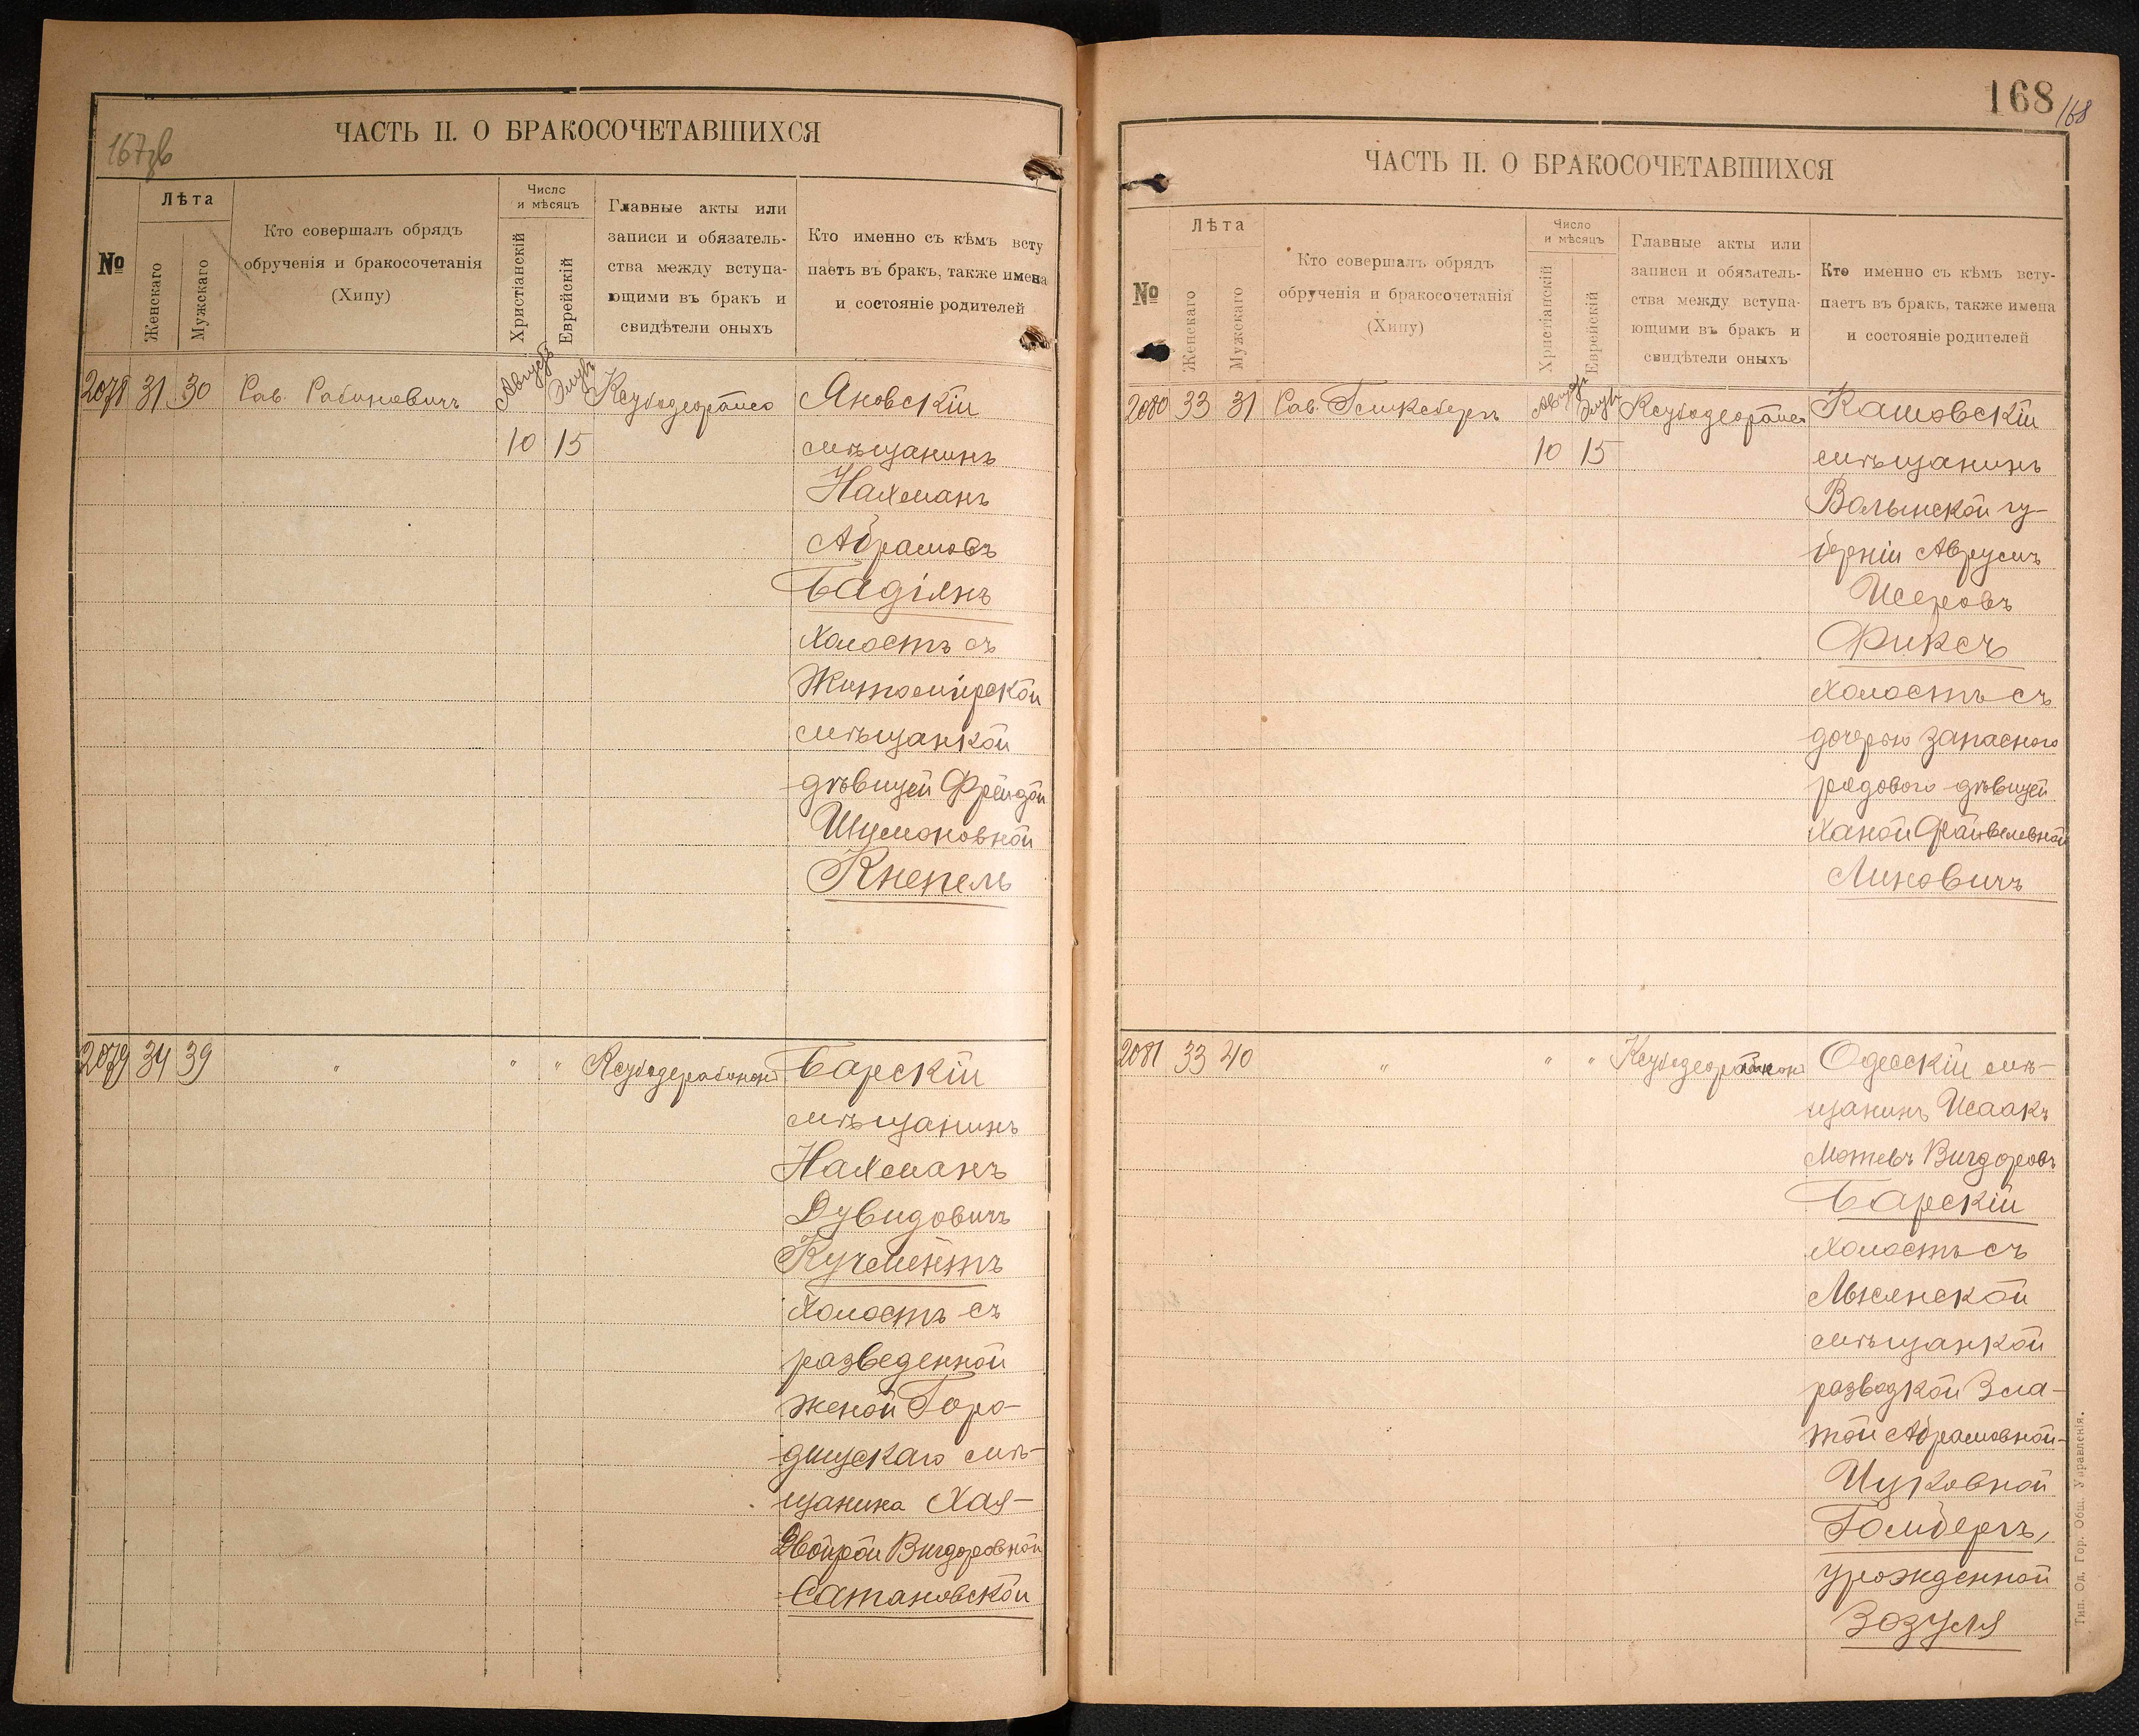 167 зв
ЧАСТЬ II. О БРАКОСОЧЕТАВШИХСЯ
№
Лѣта
Женскаго
Мужскаго
Кто совершалъ обрядъ
обрученія и бракосочетанія
(Хипу)
Число
и мѣсяцъ
Христіанскій
Еврейскій
Главные акты или
записи и обязатель-
ства между вступа-
ющими въ бракъ и
свидѣтели оныхъ
Кто именно съ кѣмъ всту
паетъ въ бракъ, также имена
и состояніе родителей
2078 31 30 Рав. Рабиновичъ Августъ Элулъ Ксубодеорайсо Яновскій
10 15 мѣщанинъ
Нахманъ
Абрамовъ
Бадіянъ
холостъ съ
Житомірской
мѣщанкой
дѣвицей Фрейдой
Шумоновной
Кнепель
2079 34 39 " " " Ксубодерабонон Барскій
мѣщанинъ
Нахманъ
Дувидовичъ
Кучментъ
холостъ съ
разведенной
женой Горо-
дищскаго мѣ-
щанина Хая-
Двойрой Вигдоровной
Сатановской
168
168
ЧАСТЬ II. О БРАКОСОЧЕТАВШИХСЯ
№
Лѣта
Женскаго
Мужскаго
Кто совершалъ обрядъ
обрученія и бракосочетанія
(Хипу)
Число
и мѣсяцъ
Христіанскій
Еврейскій
Главные акты или
записи и обязатель-
ства между вступа-
ющими въ бракъ и
свидѣтели оныхъ
Кто именно съ кѣмъ всту-
паетъ въ бракъ, также имена
и состояніе родителей
2080 33 31 Рав. Гликсбергъ Августъ Элулъ Ксубодеорайсо Кашовскій
10 15 мѣщанинъ
Волынской гу-
берніи Аврумъ
Исеровъ
Фиксъ
холостъ съ
дочерью запаснаго
рядового дѣвицей
Ханой Файвелевной
Линовичъ
2081 33 40 " " " Одесскій мѣ-
щанинъ Исаакъ
Мотевъ Вигдоровъ
Барскій
холостъ съ
Лысянской
мѣщанкой
разводкой Зла-
той Абрамовной-
Ицковной
Гомбергъ,
урожденной
Зозуля
Тип. Од. Гор. Общ. Управленія.